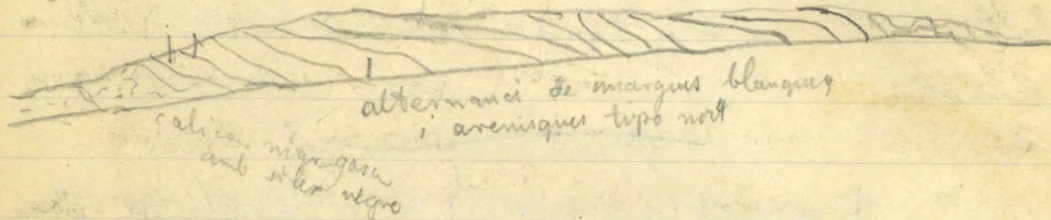 alternanci de margues blanques
i arenisques tipo nort
caliça margosa
amb silex negre